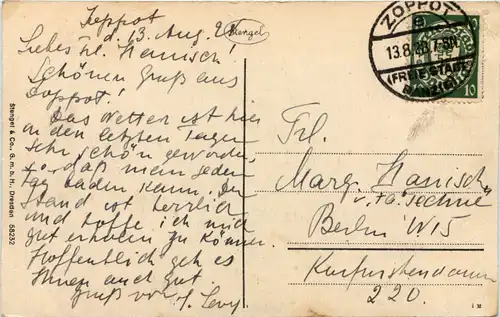 Zoppot
d. 13. Aug. 28
Liebes Frl. Hanisch!
Schönen Gruß aus
Zoppot!
Das Wetter ist hier
in den letzten Tagen
sehr schön geworden,
so daß man jeden
Tag baden kann. Der
Stand ist herrlich
und hoffe ich mich
gut erholen zu können.
Hoffentlich geh es
Ihnen auch gut.
Gruß von J. Levy
Stengel
Stengel & Co., G.m.b.H., Dresden 58252
ZOPPOT
13.8.28
(FREIE STADT
DANZIG)
10
Frl.
Marg. Hanisch
Berlin W 15
Kurfürstendamm
220.